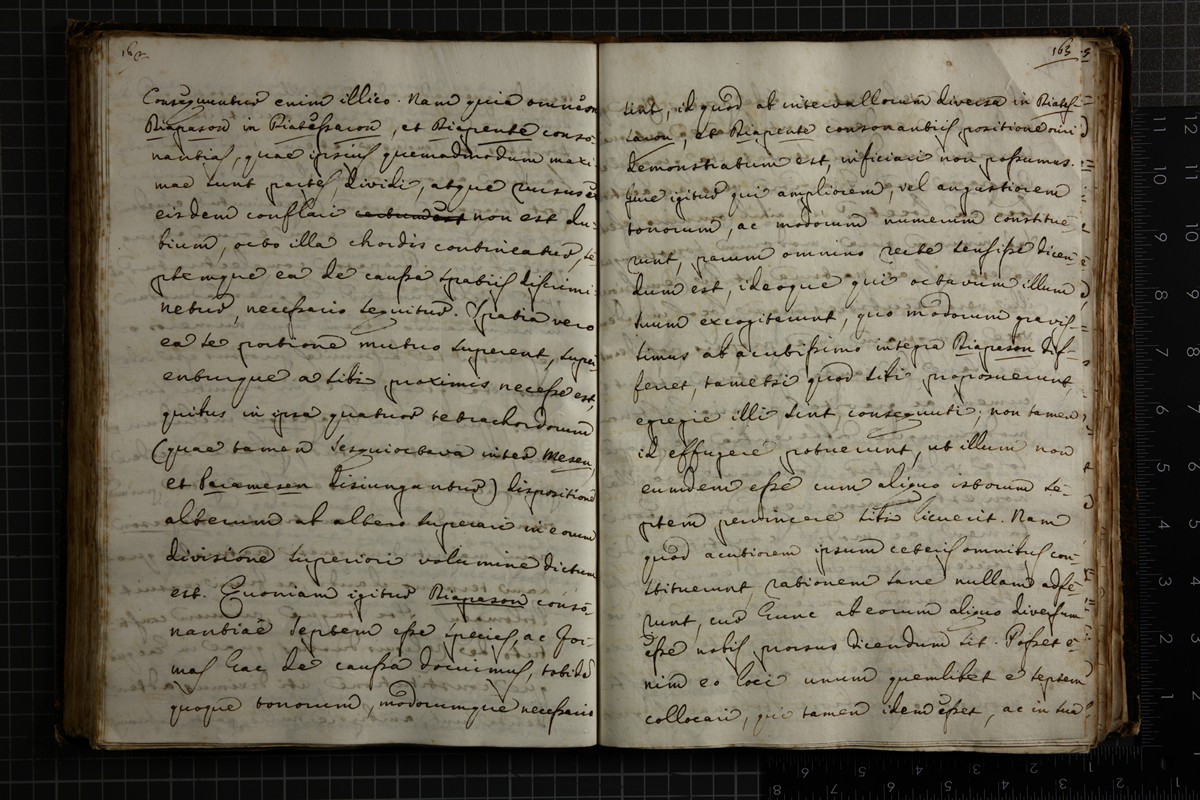 162
Consequuntur enim illico. Nam quia omnem
Diapason in Diatessaron, et Diapente conso-
nantias, quae ipsius quemadmodum maxi
mae sunt partes dividi, atque rursus ex
eisdem conflari non est du-
bium, octo illa chordis contineatur, se-
ptemque ea de caussa spatiis discrimi
netur, necessario sequitur. Spatia vero
ea se portione mutuo superent, supe
renturque a sibi proximis necesse est,
quibus in ipsa quatuor tetrachordorum
(quae tamen sesquioctava inter Mesen,
et Paramesen disiungantur) dispositione
alterum ab altero superari in eorum
divisione superiori volumine dictum
est. Quoniam igitur Diapason conso-
nantiae septem esse species, ac for-
mas hac de caussa docuimus, totidem
quoque tonorum, modorumque necessario
163
sint, id quod ab intervallorum diversa in Diatess-
saron, et Diapente consonantiis positione nisi
demonstratum est, inficiari non possumus.
Quare igitur qui ampliorem, vel angustiorem
tonorum, ac modorum numerum constitue
runt, parum omnino recte sensisse dicen-
dum est, ideoque qui octavum illum
suum excogitarunt, quo modorum gravis-
simus ab acutissimo integra Diapason dif-
feret, tametsi quod sibi proposuerunt,
egregie illi sint consequuti; non tamen
id effugere potuerunt, ut illum non
eumdem esse cum aliquo istorum se-
ptem pervincere sibi licuerit. Nam
quod acutiorem ipsum ceteris omnibus con-
stituerunt, rationem sane nullam adfe-
runt, cur hunc ab eorum aliquo diversum
esse nobis prorsus dicendum sit. Posset e-
nim eo loci unum quemlibet e septem
collocari, qui tamen idem esset, ac in sua